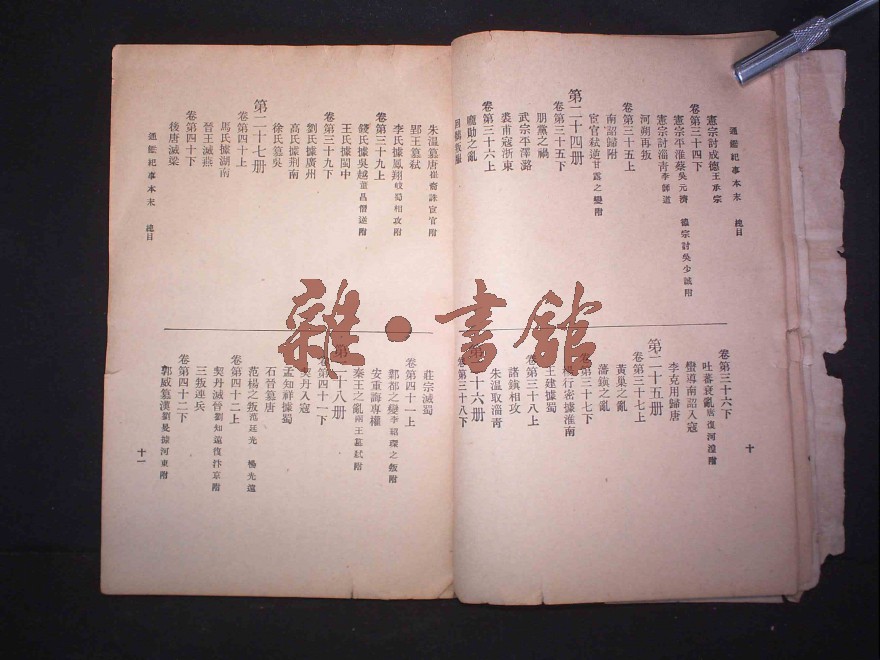 通鑑紀事本末 總目
憲宗討成德王承宗
卷第三十四下
憲宗平淮蔡吳元濟 德宗討吳少誠附
憲宗討淄青李師道
河朔再叛
卷第三十五上
南詔歸附
宦官弒逆甘露之變附
第二十四册
卷第三十五下
朋黨之禍
武宗平澤潞
裘甫寇浙東
卷第三十六上
龐勛之亂
卷第三十六下
吐蕃衰亂唐復河湟附
蠻導南詔入寇
李克用歸唐
第二十五册
卷第三十七上
黃巢之亂
藩鎮之亂
卷第三十七下
楊行密據淮南
王建據蜀
卷第三十八上
諸鎮相攻
朱溫取淄青
第二十六册
卷第三十八下
十
朱溫篡唐崔裔誅宦官附
郢王篡弒
李氏據鳳翔岐蜀相攻附
卷第三十九上
錢氏據吳越董昌僭逆附
王氏據閩中
卷第三十九下
劉氏據廣州
高氏據荆南
徐氏篡吳
第二十七册
卷第四十上
馬氏據湖南
晉王滅燕
卷第四十下
後唐滅梁
通鑑紀事本末 總目
莊宗滅蜀
卷第四十一上
鄴都之變李紹琛之叛附
安重誨專權
秦王之亂兩王墓弒附
第二十八册
卷第四十一下
契丹入寇
孟知祥據蜀
石晉篡唐
范楊之叛范廷光 楊光遠
卷第四十二上
契丹滅晉劉知遠復汴京附
三叛連兵
卷第四十二下
郭威篡漢劉旻據河東附
十一
雜·書館